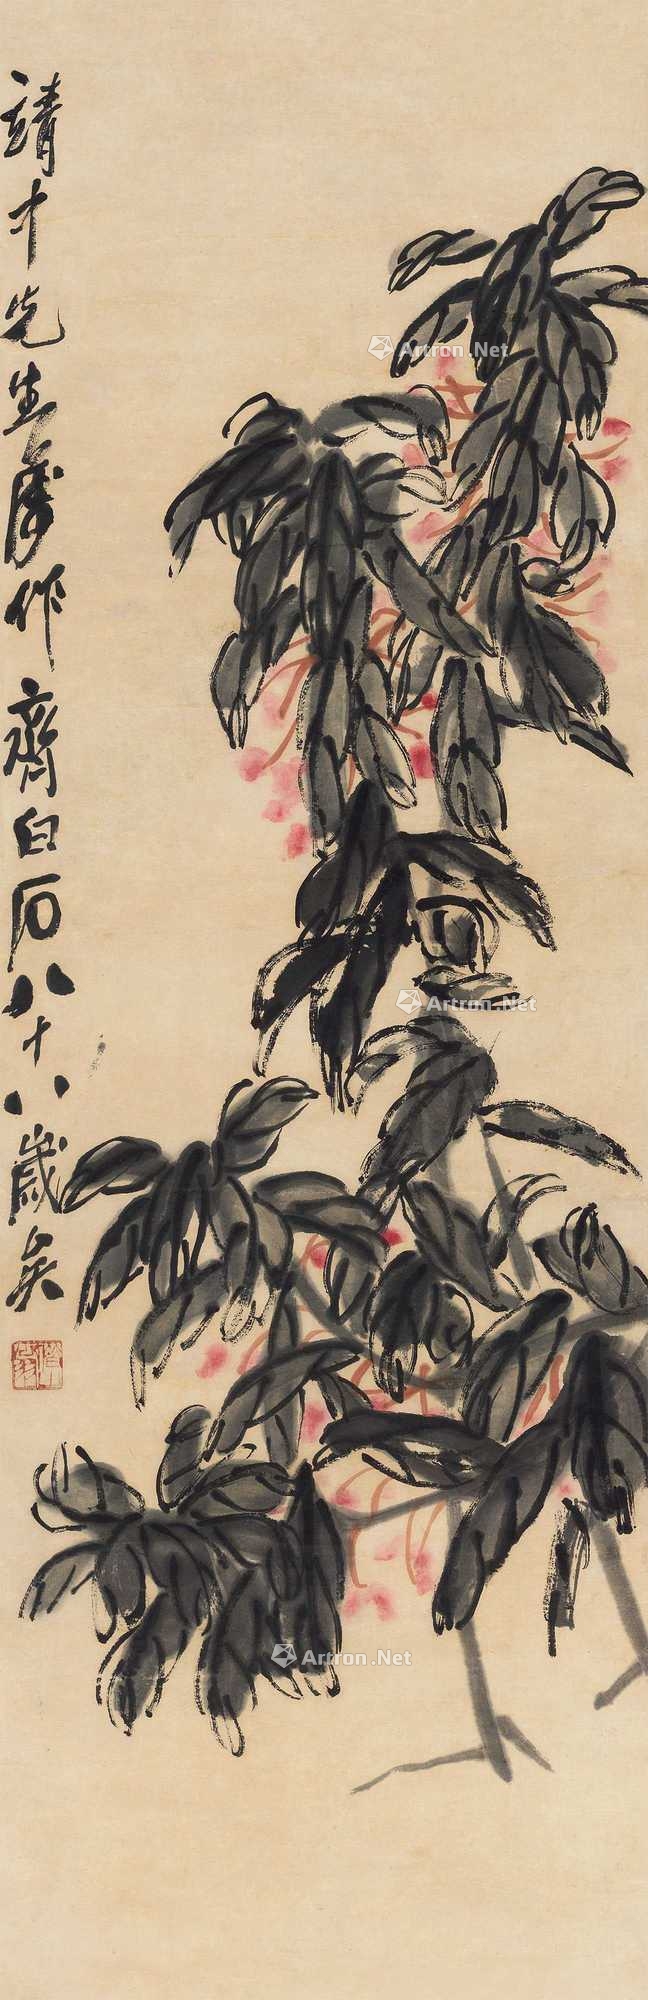 靖才先生属作齊白石八十八歲矣
Artron.Net
Artron.Net
Artron.Net